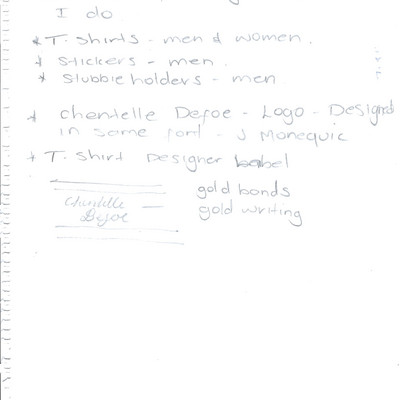 I do
* T. Shirts - men & women.
* Stickers - men.
* Stubbie holders - men
* Chentelle Defoe - Logo - Designed
in same font -
* T. Shirt Designer label
gold bonds
Chentelle
Defoe
gold writing